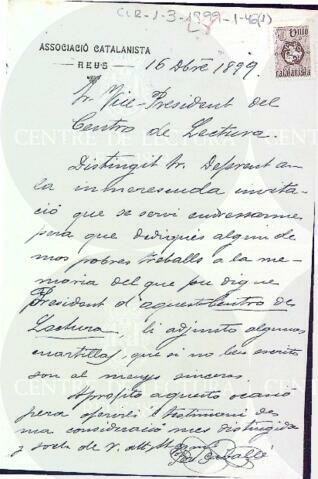 CLR-1-3-1899-1-46(1)
ASSOCIACIÓ CATALANISTA
REUS
Unió
catalanista
16 Dbre 1899.
Sr Vice-President del
Centro de Lectura.
Distingit Sr. Deferent a
la inmerescuda invita-
ció que se serví endressarme
pera que dediqués algún de
mos pobres treballs a la me-
moria del que fou digne
President d'aquest Centro de
Lectura li adjunto algunas
cuartillas, que si no ben escritas
son al menys sinceras.
Aprofito aquesta ocasió
pera oferirli 'l testimoni de
ma consideració mes distingida
CENTRE DE LECTURA